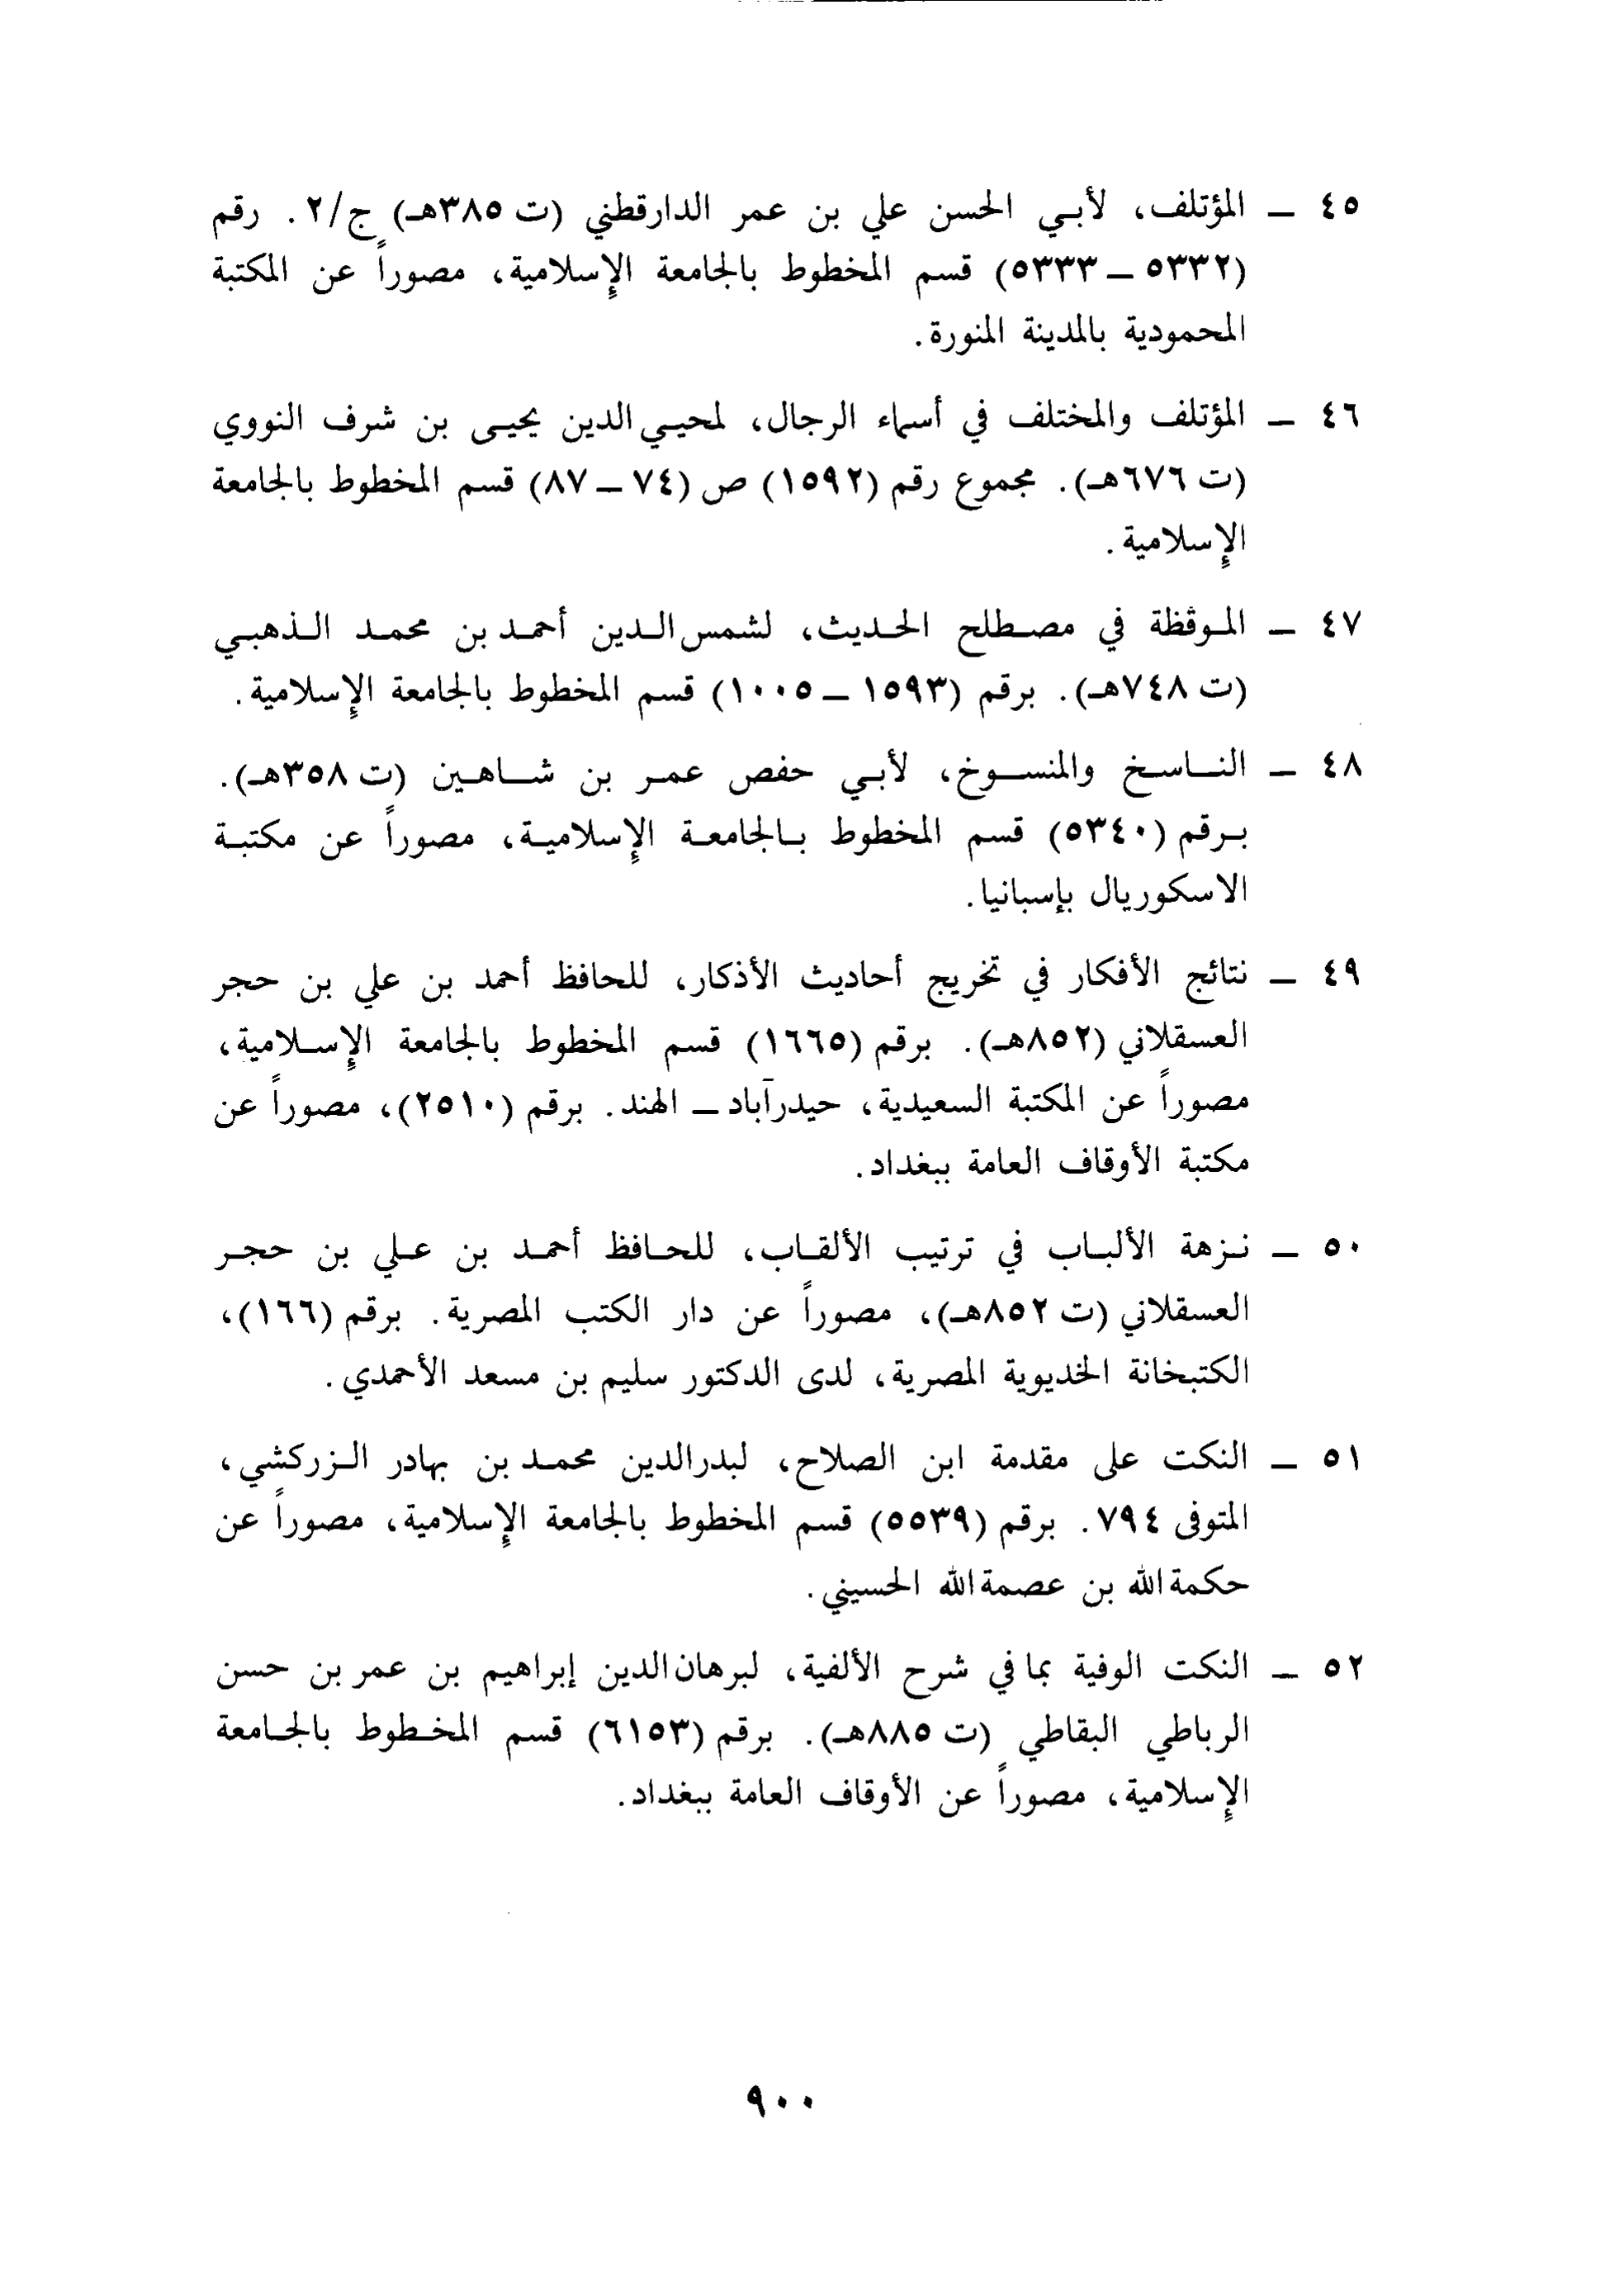 ٤٥ – المؤتلف، لأبي الحسن علي بن عمر الدارقطني (ت ٣٨٥هـ) ج/٢. رقم
(٥٣٣٢ – ٥٣٣٣) قسم المخطوط بالجامعة الإسلامية، مصوراً عن المكتبة
المحمودية بالمدينة المنورة.
٤٦ – المؤتلف والمختلف في أسماء الرجال، لمحيي الدين يحيى بن شرف النووي
(ت ٦٧٦هـ). مجموع رقم (١٥٩٢) ص (٧٤ – ٨٧) قسم المخطوط بالجامعة
الإسلامية.
٤٧ – الموقظة في مصطلح الحديث، لشمس الدين أحمد بن محمد الذهبي
(ت ٧٤٨هـ). برقم (١٥٩٣ – ١٠٠٥) قسم المخطوط بالجامعة الإسلامية.
٤٨ – الناسخ والمنسوخ، لأبي حفص عمر بن شاهين (ت ٣٥٨هـ).
برقم (٥٣٤٠) قسم المخطوط بالجامعة الإسلامية، مصوراً عن مكتبة
الاسكوريال بإسبانيا.
٤٩ – نتائج الأفكار في تخريج أحاديث الأذكار، للحافظ أحمد بن علي بن حجر
العسقلاني (٨٥٢هـ). برقم (١٦٦٥) قسم المخطوط بالجامعة الإسلامية،
مصوراً عن المكتبة السعيدية، حيدرآباد – الهند. برقم (٢٥١٠)، مصوراً عن
مكتبة الأوقاف العامة ببغداد.
٥٠ – نزهة الألباب في ترتيب الألقاب، للحافظ أحمد بن علي بن حجر
العسقلاني (ت ٨٥٢هـ)، مصوراً عن دار الكتب المصرية. برقم (١٦٦)،
الكتبخانة الخديوية المصرية، لدى الدكتور سليم بن مسعد الأحمدي.
٥١ – النكت على مقدمة ابن الصلاح، لبدرالدين محمد بن بهادر الزركشي،
المتوفى ٧٩٤. برقم (٥٥٣٩) قسم المخطوط بالجامعة الإسلامية، مصوراً عن
حكمة الله بن عصمة الله الحسيني.
٥٢ – النكت الوفية بما في شرح الألفية، لبرهان الدين إبراهيم بن عمر بن حسن
الرباطي البقاطي (ت ٨٨٥هـ). برقم (٦١٥٣) قسم المخطوط بالجامعة
الإسلامية، مصوراً عن الأوقاف العامة ببغداد.
٩٠٠